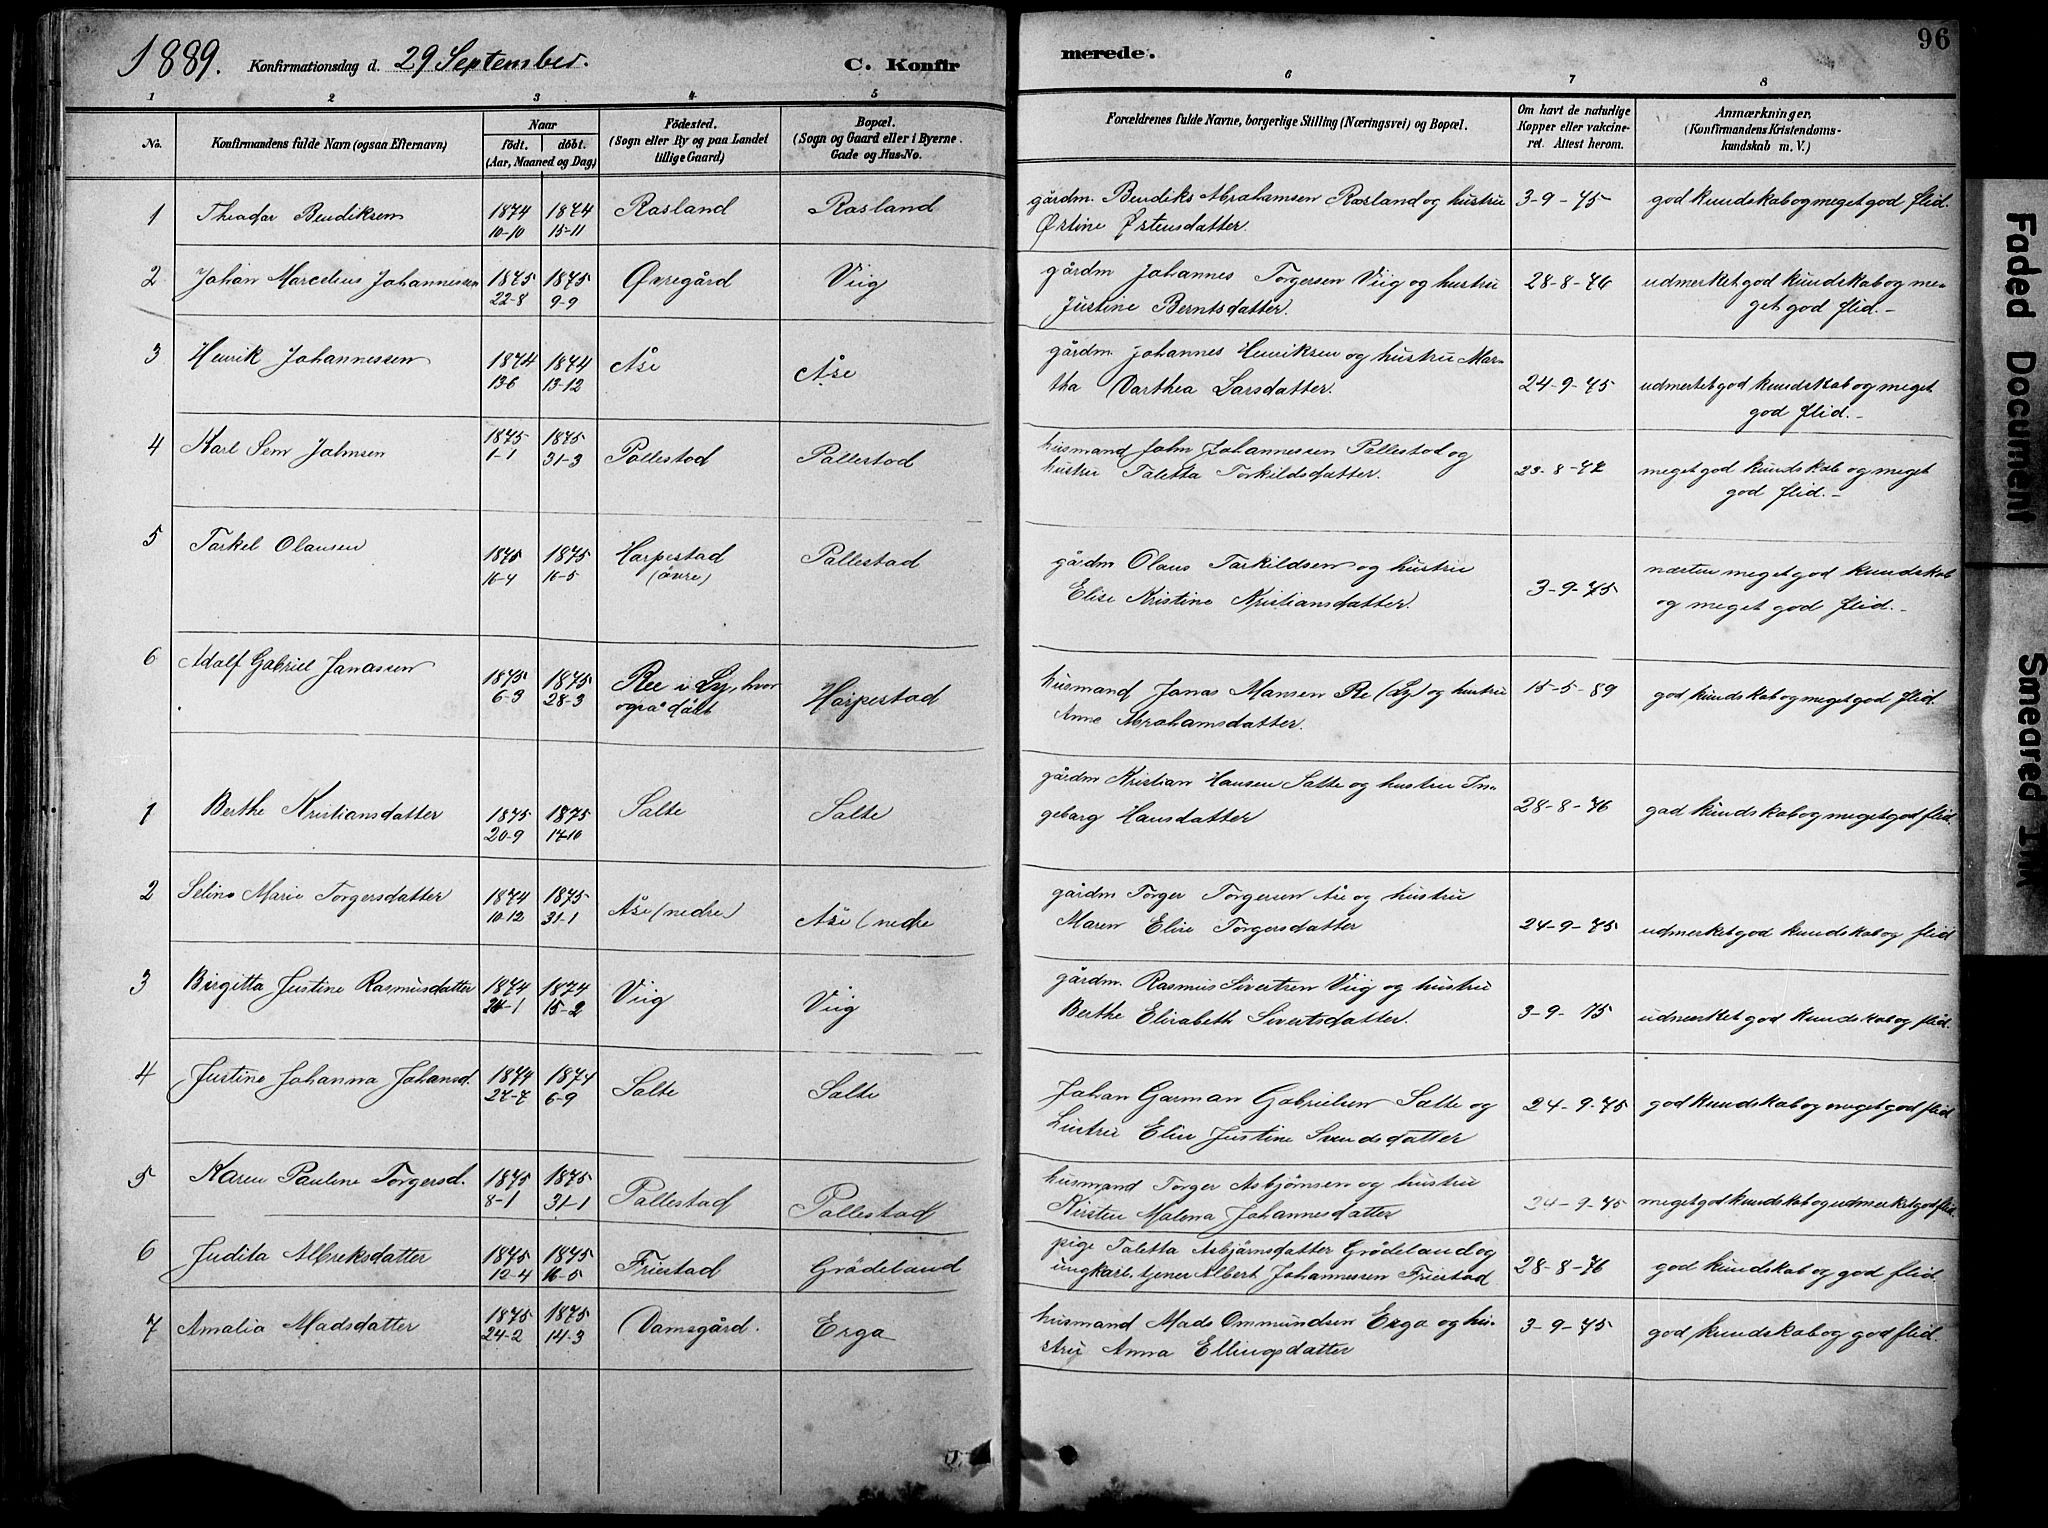 1889. Konfirmationsdag d. 29 September. C. Konfir
merede. 96
1 2 3 4 5 6 7 8
No. Konfirmandens fulde Navn (ogsaa Efternavn) Naar født. døbt. (Aar, Maaned og Dag) Fødested. (Sogn eller By og paa Landet tillige Gaard) Bopæl. (Sogn og Gaard eller i Byerne Gade og Hus-No. Forældrenes fulde Navne, borgerlige Stilling (Næringsvei) og Bopæl. Om havt de naturlige Kopper eller vakcineret. Attest herom. Anmærkninger. (Konfirmandens Kristendomskundskab m. V.)
1 Theodor Bendiksen 1874 10-10 1874 15-11 Rosland Rosland gårdm. Bendiks Abrahamsen Rosland og hustru 3-9-75 god kundskab og meget god flid.
Østine Østensdatter.
2 Johan Marcelius Johannessen 1875 22-8 1875 9-9 Øvregård Viig gårdm Johannes Torgersen Viig og hustru 28-8-76 udmerket god kundskab og me-
Justine Berntsdatter. get god flid.-
3 Henrik Johannessen 1874 13-6 1874 13-12 Åse Åse gårdm. Johannes Henriksen og hustru Mar-
tha Dorthea Larsdatter. 24-9-75 udmerket god kundskab og meget
god flid.-
4 Karl Sem Johnsen 1875 1-1 1875 31-3 Pollestad Pollestad husmand John Johannessen Pollestad og
hustru Taletta Torkildsdatter. meget god kundskab og meget
god flid.-
5 Torkel Olausen 1875 16-4 1875 16-5 Horpestad (övre) Pollestad gådm Olaus Torkildsen og hustru næsten meget god kundskab
Elise Kristine Kristiansdatter. 3-9-75 og meget god flid.-
6 Adolf Gabriel Jonassen 1875 6-3 1875 28-3 Ree i Ly, hvor også döbt Horpestad husmand Jonas Monsen Re (Ly) og hustru 15-5-89 god kundskab og meget god flid.
Anne Abrahamsdatter.
1 Berthe Kristiansdatter 1875 20-9 1875 17-10 Salte Salte gårdm Kristian Hansen Salte og hustru In-
geborg Hansdatter 28-8-76 god kundskab og meget god flid.
2 Seline Marie Torgersdatter 1874 10-12 1875 31-1 Åse (nedre) Åse (nedre gårdm Torger Torgersen Åse og hustru
Maren Elise Torgersdatter 24-9-75 udmerket god kundskab og flid
3 Birgitta Justine Rasmusdatter 1874 1874 15-2 Viig Viig gårdm. Rasmus Sivertsen Viig og hustru
Berthe Elisabeth Sivertsdatter. 3-9-75 udmerket god kundskab og flid.
4 Justine Johanna Johansd. 1874 27-7 1874 6-9 Salte Salte Johan Garman Gabrielsen Salte og 24-9-75 god kundskab og meget god flid
hustru Elise Justine Svendsdatter
5 Karen Pauline Torgersd. 1875 8-1 1875 31-1 Pollestad Pollestad husmand Torger Asbjörnsen og hustru
Kirsten Malena Johannesdatter 24-9-75 meget god kundskab og udmerket god flid.
6 Judita Albreksdatter 1875 12-4 1875 16-5 Friestad Grödeland pige Taletta Asbjörnsdatter Grödeland og
ungkarl, tjener Albert Johannessen Friestad 28-8-76 god kundskab og god flid.
7 Amalia Madsdatter 1875 24-2 1875 14-3 Damsgård. Erga husmand Mads Ommundsen Erga og hu- 3-9-75 god kundskab og god flid.
stru Anna Ellingsdatter
Faded Document
Smeared Ink